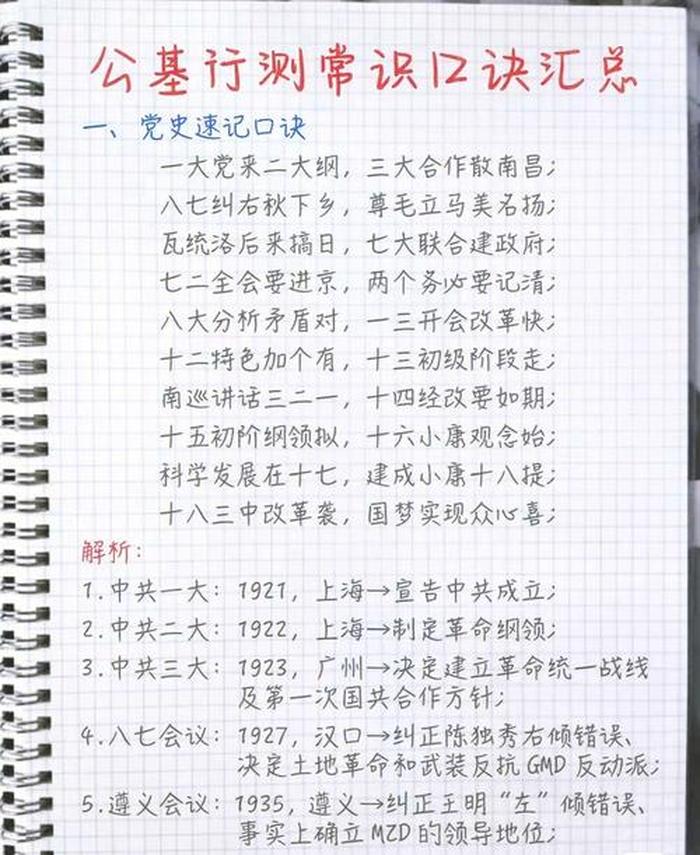 公基行测常识口诀汇总
一、党史速记口诀
一大党来二大纲，三大合作散南昌；
八七纠右秋下乡，尊毛立马美名扬；
瓦统洛后来搞日，七大联合建政府；
七二全会要进京，两个务必要记清；
八大分析矛盾对，一三开会改革快；
十二特色加个有，十三初级阶段走；
南巡讲话三二一，十四经改要如期；
十五初阶纲领拟，十六小康观念始；
科学发展在十七，建成小康十八提；
十八三中改革袭，国梦实现众心喜；
解析：
1.中共一大：1921，上海→宣告中共成立；
2.中共二大：1922，上海→制定革命纲领；
3.中共三大：1923，广州→决定建立革命统一战线
及第一次国共合作方针；
4.八七会议：1927，汉口→纠正陈独秀右倾错误、
决定土地革命和武装反抗GMD反动派；
5.遵义会议：1935，遵义→纠正王明“左”倾错误、
事实上确立MZD的领导地位；